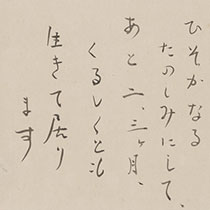 ひそかなる
たのしみにして、
あと 二、三ヶ月、
くるしくとも
生きて居り
ます